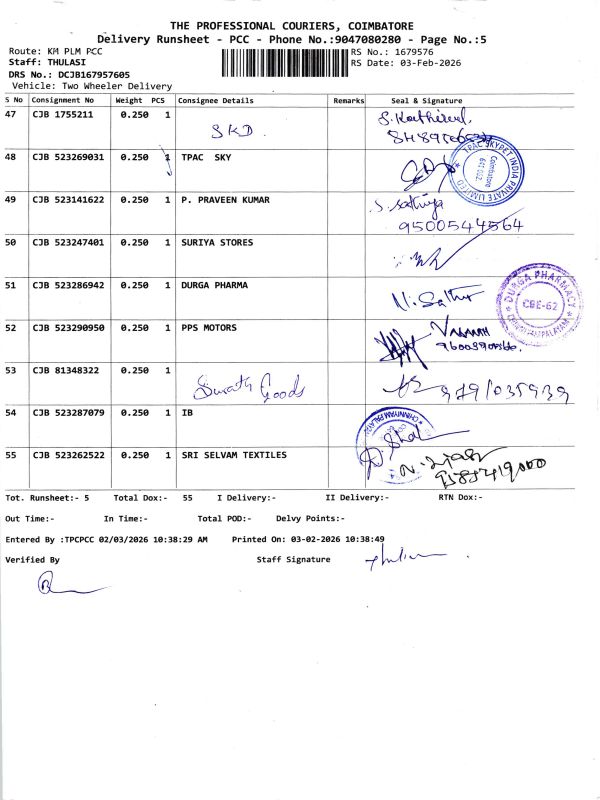 THE PROFESSIONAL COURIERS, COIMBATORE
Delivery Runsheet - PCC - Phone No.:9047080280 - Page No.:5
Route: KM PLM PCC
RS No.: 1679576
Staff: THULASI
RS Date: 03-Feb-2026
DRS No.: DCJB167957605
Vehicle: Two Wheeler Delivery
S No Consignment No Weight PCS Consignee Details Remarks Seal & Signature
47 CJB 1755211 0.250 1 SKD
48 CJB 523269031 0.250 1 TPAC SKY
TPAC SKYPET INDIA PRIVATE LIMITED
Coimbatore
49 CJB 523141622 0.250 1 P. PRAVEEN KUMAR S. Sathiya
9500544564
50 CJB 523247401 0.250 1 SURIYA STORES
51 CJB 523286942 0.250 1 DURGA PHARMA
DURGA PHARMACY
CBE-62
52 CJB 523290950 0.250 1 PPS MOTORS
53 CJB 81348322 0.250 1 Goods 9791035939
54 CJB 523287079 0.250 1 IB
55 CJB 523262522 0.250 1 SRI SELVAM TEXTILES
Tot. Runsheet:- 5 Total Dox:- 55 I Delivery:- II Delivery:- RTN Dox:-
Out Time:- In Time:- Total POD:- Delvy Points:-
Entered By :TPCPCC 02/03/2026 10:38:29 AM Printed On: 03-02-2026 10:38:49
Verified By Staff Signature